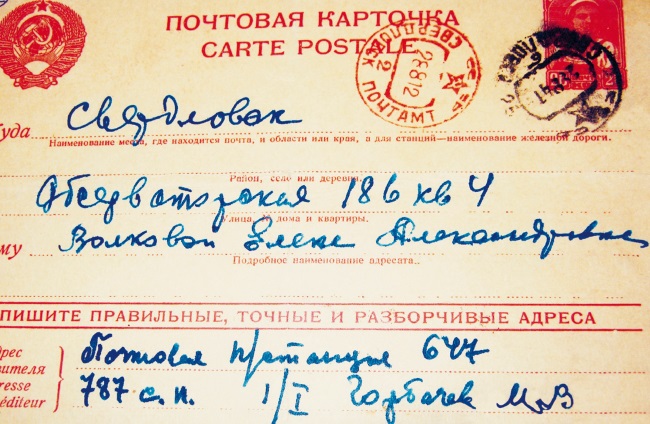 ПОЧТОВАЯ КАРТОЧКА
CARTE POSTALE
СВЕРДЛОВСК
ПОЧТАМТ
уда Свердловск
Наименование места, где находится почта, и области или края, а для станций—наименование железной дороги.
Район, село или деревня.
Обсерваторская 186 кв 4
Улица, № дома и квартиры.
му Волковой Елене Александровне
Подробное наименование адресата.
ПИШИТЕ ПРАВИЛЬНЫЕ, ТОЧНЫЕ И РАЗБОРЧИВЫЕ АДРЕСА
дрес Полевая п/станция 647
вителя
dresse 787 с.п. 1/I Горбачек М.В
éditeur